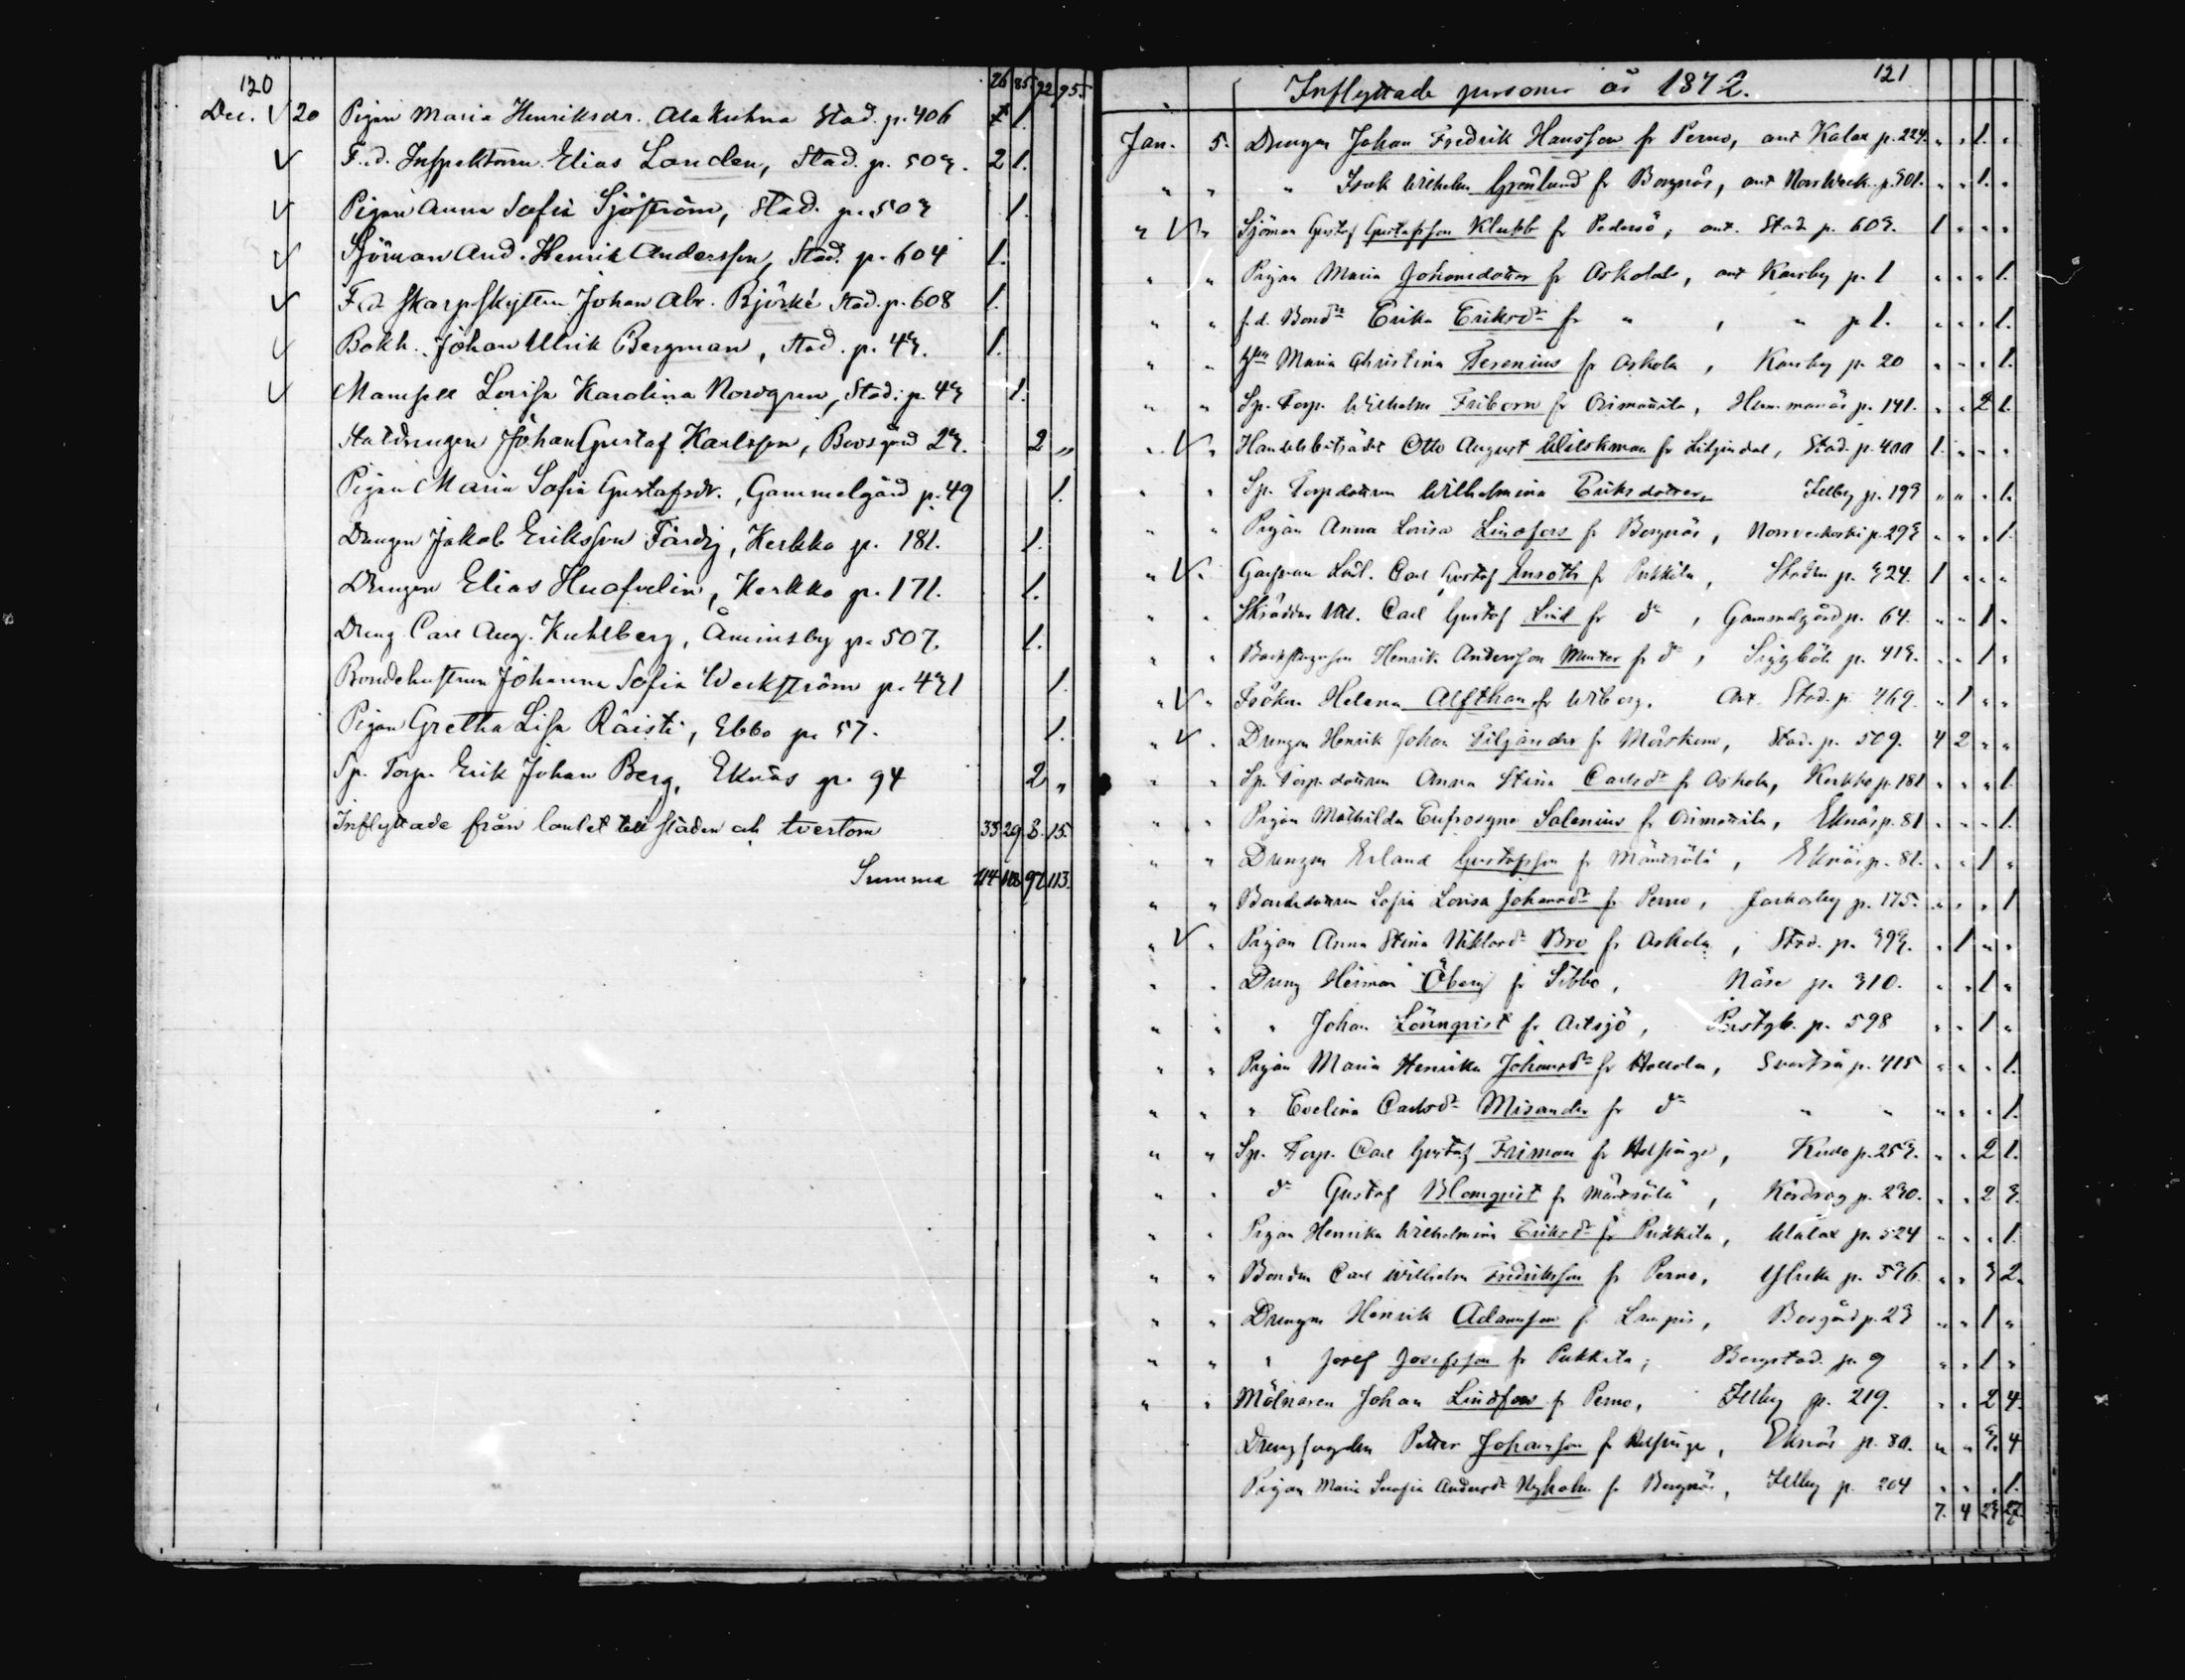 120 26 85. 92 95.
Dec. V 20 Pigan Maria Henriksdr. Alakuhna Stad. p. 406 1.
V F.d. Inspektoren Elias Landen, Stad. p. 503. 2 1.
V Pigan Anna Sofia Sjöström, Stad. p. 503 1.
V Sjöman And. Henrik Andersson, Stad. p. 604 1.
V F.d. Skarpskytten Johan Abr. Björké Stad. p. 608 1.
V Bokh. Johan Ulrik Bergman, Stad. p. 43. 1.
V Mamsell Lovisa Karolina Nordgren, Stad. p. 43 1.
Statdrengen Johan Gustaf Karlsson, Bosgård 23. 2 „
Pigan Maria Sofia Gustafsdr., Gammelgård p. 49 1.
Drengen Jakob Eriksson Färdig, Kerkko p. 181. 1.
Drengen Elias Huafvelin, Kerkko p. 171. 1.
Dreng Carl Aug. Kuhlberg, Åminsby p. 507. 1.
Bondehustrun Johanna Sofia Weckström p. 431 1.
Pigan Gretha Lisa Räisti, Ebbo p. 57. 1.
Sp. Torp. Erik Johan Berg, Eknäs p. 94 2 „
Inflyttade från landet till staden och tvertom 33 29 8. 15.
Summa 114 97 113.
Inflyttade personer år 1872. 121
Jan. 5. Drengen Johan Fredrik Hansson fr Perno, ant Kalax p. 224. „ „ 1. „
„ „ „ Isak Wilhelm Grönlund fr Borgnäs, ant Norrveck. p. 301. „ „ 1. „
„ V „ Sjöman Gustaf Gustafsson Klubb fr Pedersö, ant. Stad p. 603. 1 „ „ „
„ „ Pigan Maria Johansdotter fr Askola, ant Karsby p. 1 „ „ „ 1.
„ „ f.d. Bond Erika Eriksdr fr „ , „ p 1. „ „ „ 1.
„ „ Maria Christina Ferenius fr Askola, Karsby p. 20 „ „ „ 1.
„ „ Sp. Torp. Wilhelm Friborn fr Orimattila, Hummanäs p. 141. „ „ 2 1.
„ V „ Handelsbiträdet Otto August Wilskman fr Liljendal, Stad. p. 400 1. „ „ „
„ „ Sp. Torpdottren Wilhelmina Eriksdotter, Illby p. 193 „ „ „ 1.
„ „ Pigan Anna Lovisa Lindfors fr Borgnäs, Norrveckoski p. 293 „ „ „ 1.
„ V „ Carl Gustaf Enroth fr Pukkila, Staden p. 324. 1 „ „ „
„ „ Skräddar Carl Gustaf Lind fr do, Gammelgård p. 64. „ „ 1 „
„ „ Henrik Andersson Munter fr do, Siggböle p. 413. „ „ 1 „
„ V „ Fröken Helena Alfthan fr Wiborg, Ant. Stad. p. 469. „ 1 „ „
„ V „ Drengen Henrik Johan Filjander fr Mörskom, Stad. p. 509. 4 2 „ „
„ „ Sp. Torp. dottren Anna Stina Carlsdr fr Askola, Kerkko p. 181 „ „ „ 1.
„ „ Pigan Mathilda Eufrosyne Salenius fr Orimattila, Eknäs p. 81 „ „ „ 1.
„ „ Drengen Erland Gustafsson fr Mäntsälä, Eknäs p. 81. „ „ 1 „
„ „ Bondedottren Sofia Lovisa Johansdr fr Perno, Jackarby p. 175. „ „ „ 1
„ V „ Pigan Anna Stina Niklasdr Bro fr Askola, Stad. p. 393. „ 1 „ „
„ „ Dreng Herman Öberg fr Sibbo, Näse p. 310. „ „ 1 „
„ „ „ Johan Lönnqvist fr Artsjö, Prestgb. p. 598 „ „ 1 „
„ „ Pigan Maria Henrika Johansdr fr Hollola, Svartså p. 415 „ „ „ 1.
„ „ „ Evelina Carlsdr Misander fr do „ „ „ „ „ 1.
„ „ Sp. Torp. Carl Gustaf Friman fr Helsinge, Kudo p. 253. „ „ 2 1.
„ „ do Gustaf Blomqvist fr Mäntsälä, Kordrag p. 230. „ „ 2 3.
„ „ Pigan Henrika Wilhelmina Eriksdr fr Pukkila, Walax p. 524 „ „ „ 1.
„ „ Bonden Carl Wilhelm Fredriksson fr Perno, Ylrike p. 536. „ „ 3 2.
„ „ Drengen Henrik Adamsson fr Lampis, Bosgård p. 23 „ „ 1 „
„ „ „ Josef Josefsson fr Pukkila, Bergstad. p. 9 „ „ 1 „
„ „ Mölnaren Johan Lindfors fr Perno, Illby p. 219. „ „ 2 4.
Drengfogden Petter Johansson fr Helsinge, Eknäs p. 80. „ „ 3. 4
Pigan Maria Serafia Andersdr Nyholm fr Borgnäs, Illby p. 204 „ „ „ 1.
7. 4 23 27.